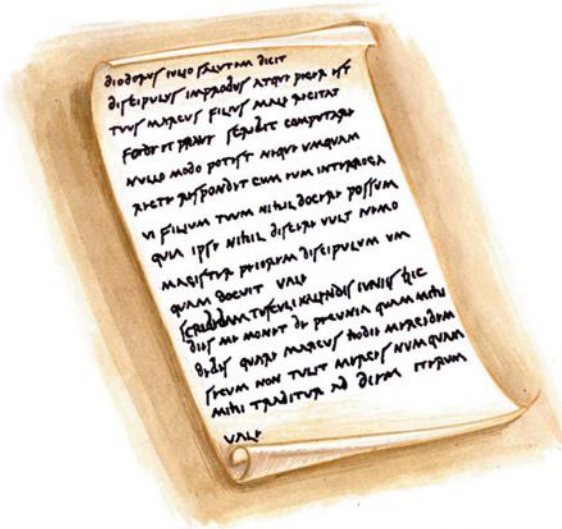 DIODORUS IULIO SALUTEM DICIT
DISCIPULUS IMPROBUS ATQUE PIGER EST
TUUS MARCUS FILIUS MALE RECITAT
FOEDE ET PRAVE SCRIBIT COMPUTARE
NULLO MODO POTEST NEQUE UMQUAM
RECTE RESPONDET CUM EUM INTERROGA
VI FILIUM TUUM NIHIL DOCERE POSSUM
QUIA IPSE NIHIL DISCERE VULT NEMO
MAGISTER PEIOREM DISCIPULUM UM
QUAM DOCUIT VALE
SCRIBEBAM TUSCULI KALENDIS IUNIIS HIC
DIES ME MONET DE PECUNIA QUAM MIHI
DEBES QUARE MARCUS HODIE MERCEDEM
SECUM NON TULIT MERCES NUMQUAM
MIHI TRADITUR AD DIEM ITERUM
VALE